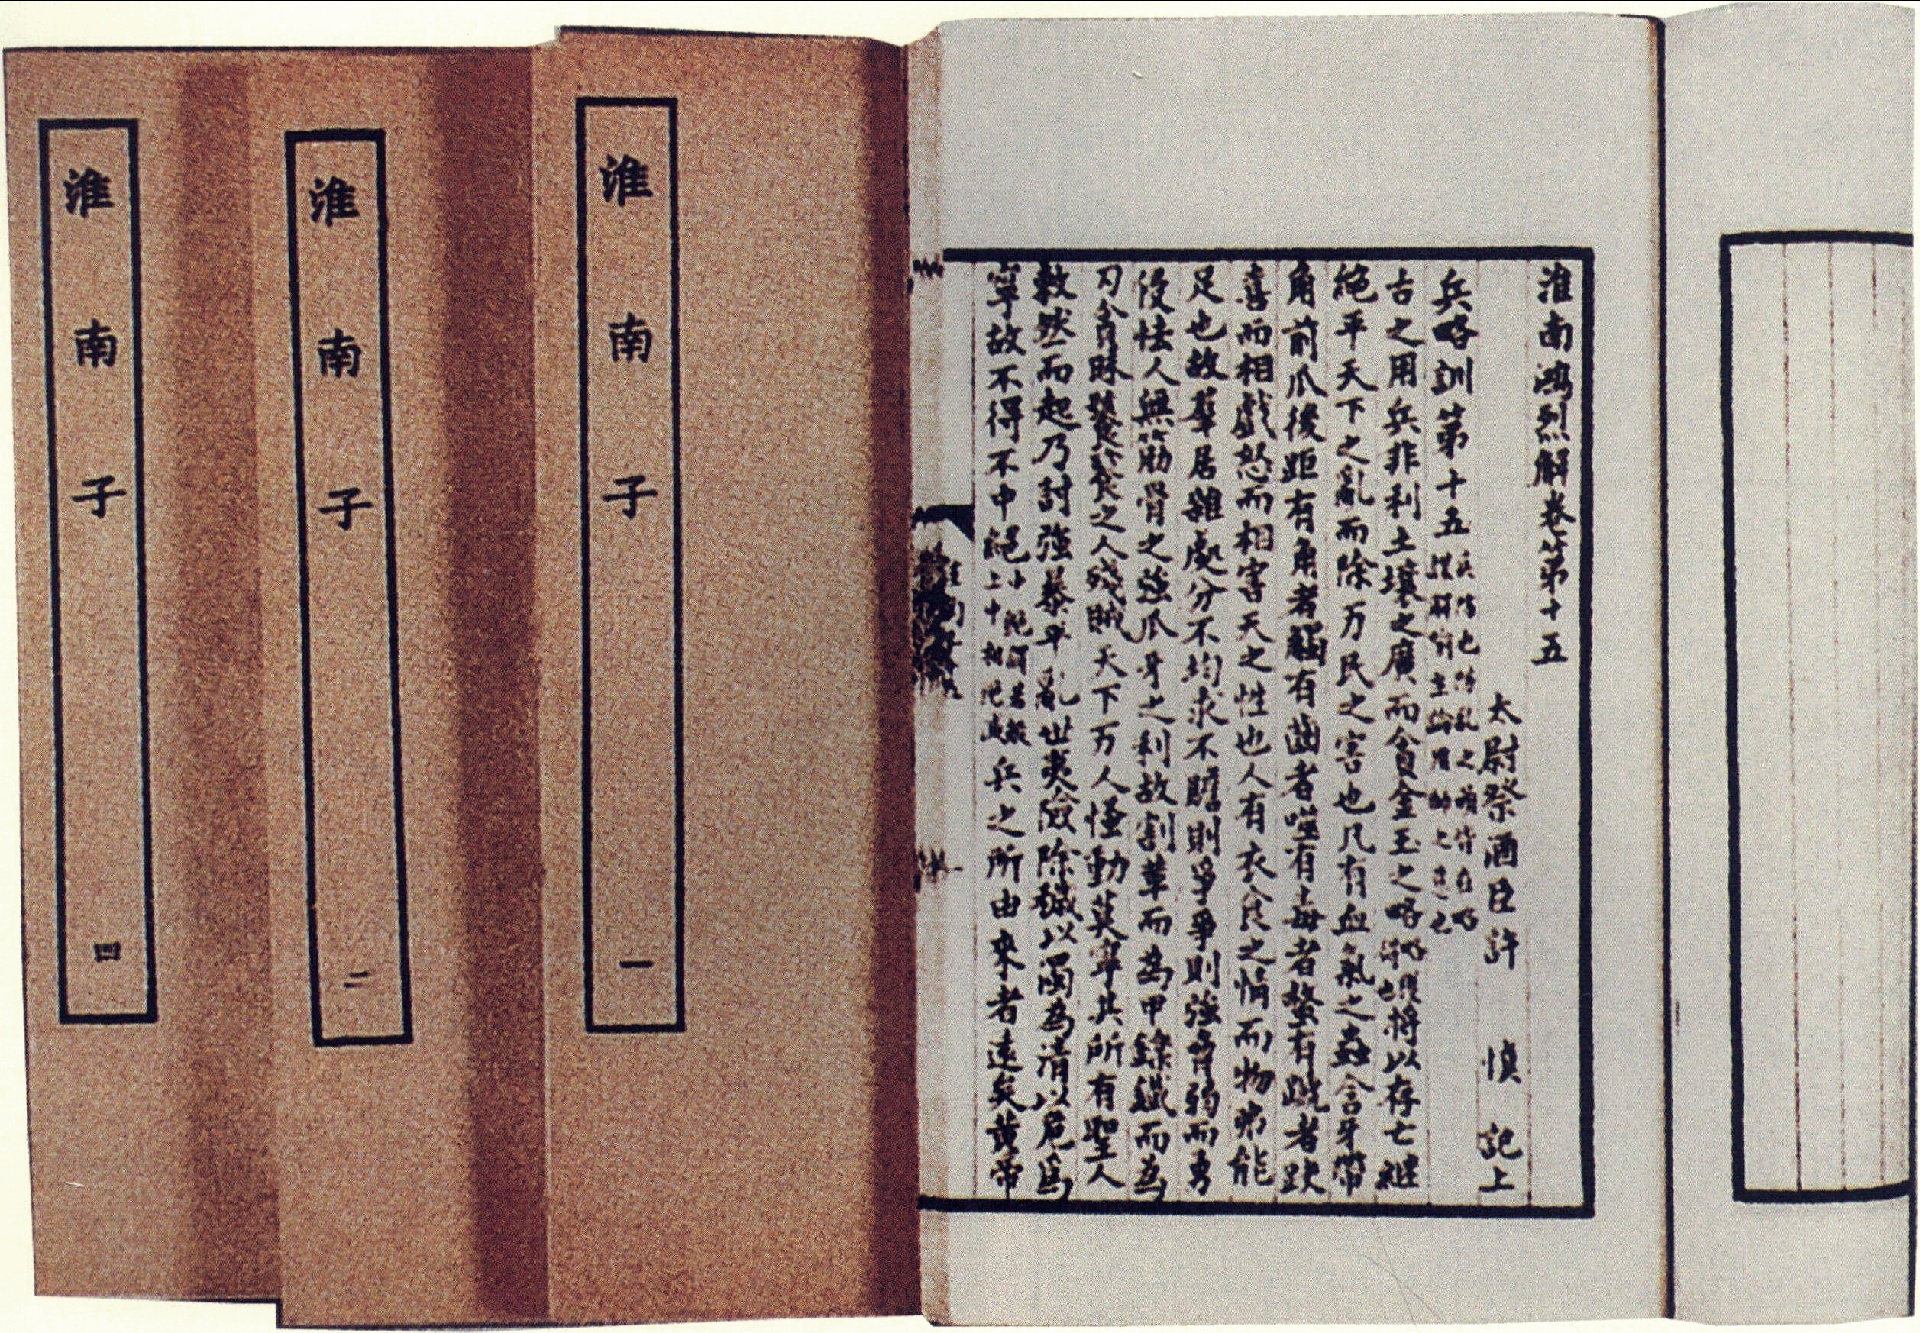 淮南子 四
淮南子 二
淮南子 一
淮南鴻烈解卷第十五
太尉祭酒臣許 慎 記上
兵略訓第十五
古之用兵非利土壤之廣而貪金玉之略 將以存亡繼
絕平天下之亂而除万民之害也凡有血氣之蟲含牙帶
角前爪後距有角者觸有齒者噬有毒者螫有蹏者趹
喜而相戲怒而相害天之性也人有衣食之情而物弗能
足也故羣居雜處分不均求不贍則爭爭則強脅弱而勇
侵怯人無筋骨之強爪牙之利故割革而為甲鑠鐵而為
刃貪昧饕餮之人殘賊天下万人搔動莫寧其所有聖人
敕然而起乃討強暴平亂世夷險除穢以濁為清以危為
寧故不得不中絕 兵之所由來者遠矣黃帝